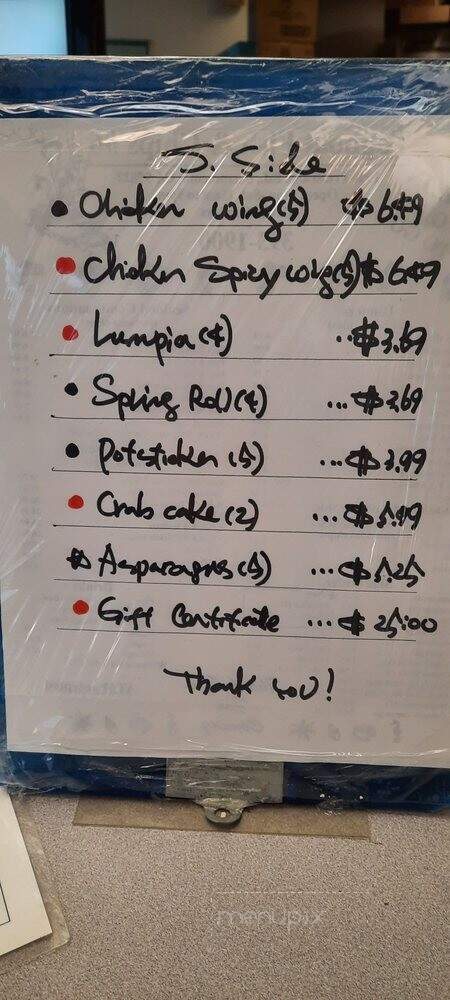 S. Side
• Chicken wing(5) $6.49
• Chicken Spicy wing(5) $6.49
• Lumpia(4) ...$3.69
• Spring Roll(4) ...$3.69
• Potsticker(5) ...$3.99
• Crab cake(2) ...$5.99
Asparagus(5) ...$5.25
• Gift Certificate ...$25.00
Thank you!
menupix